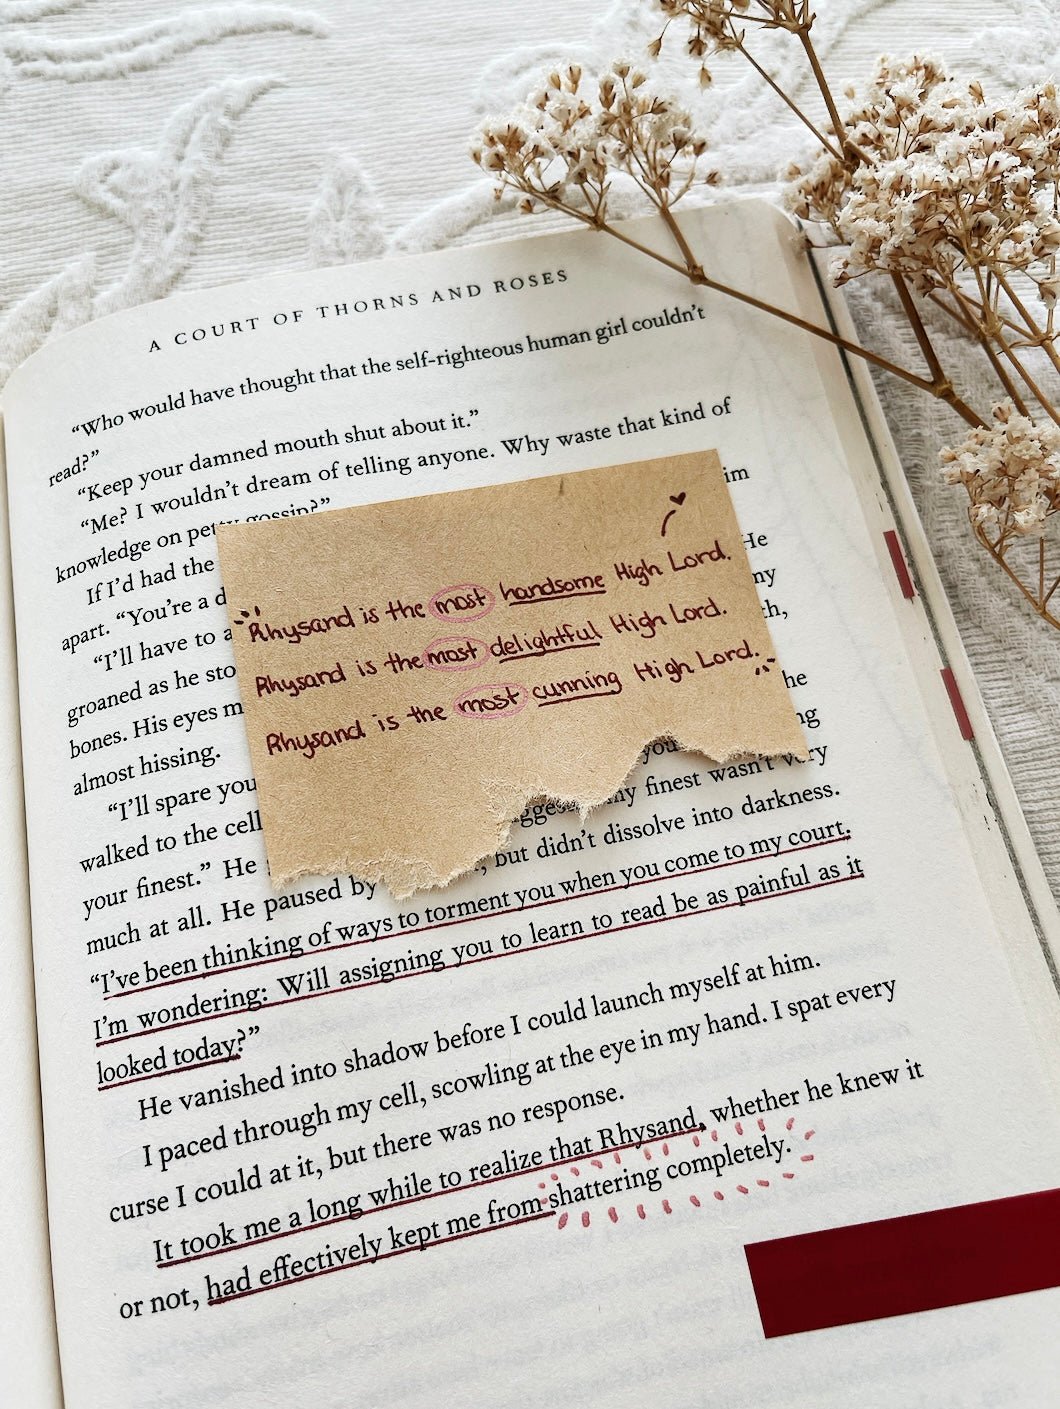 A COURT OF THORNS AND ROSES
“Who would have thought that the self-righteous human girl couldn’t
read?”
“Keep your damned mouth shut about it.”
“Me? I wouldn’t dream of telling anyone. Why waste that kind of
knowledge on petty gossip?”
If I’d had the
apart. “You’re a
He
“I’ll have to
groaned as he
bones. His eyes
almost hissing.
“I’ll spare you
walked to the cell
your finest.” He my finest wasn’t very
much at all. He paused by but didn’t dissolve into darkness.
“I’ve been thinking of ways to torment you when you come to my court.
I’m wondering: Will assigning you to learn to read be as painful as it
looked today?”
He vanished into shadow before I could launch myself at him.
I paced through my cell, scowling at the eye in my hand. I spat every
curse I could at it, but there was no response.
It took me a long while to realize that Rhysand, whether he knew it
or not, had effectively kept me from shattering completely.
"Rhysand is the most handsome High Lord.
Rhysand is the most delightful High Lord.
Rhysand is the most cunning High Lord."